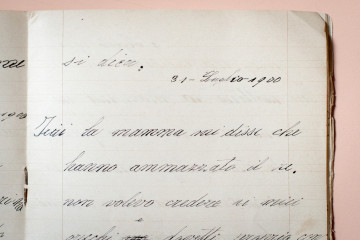 si dica.
31 - Luglio - 1900
Ieri la mamma mi disse che
hanno ammazzato il re.
non volevo credere ai miei
orecchi ma dovetti